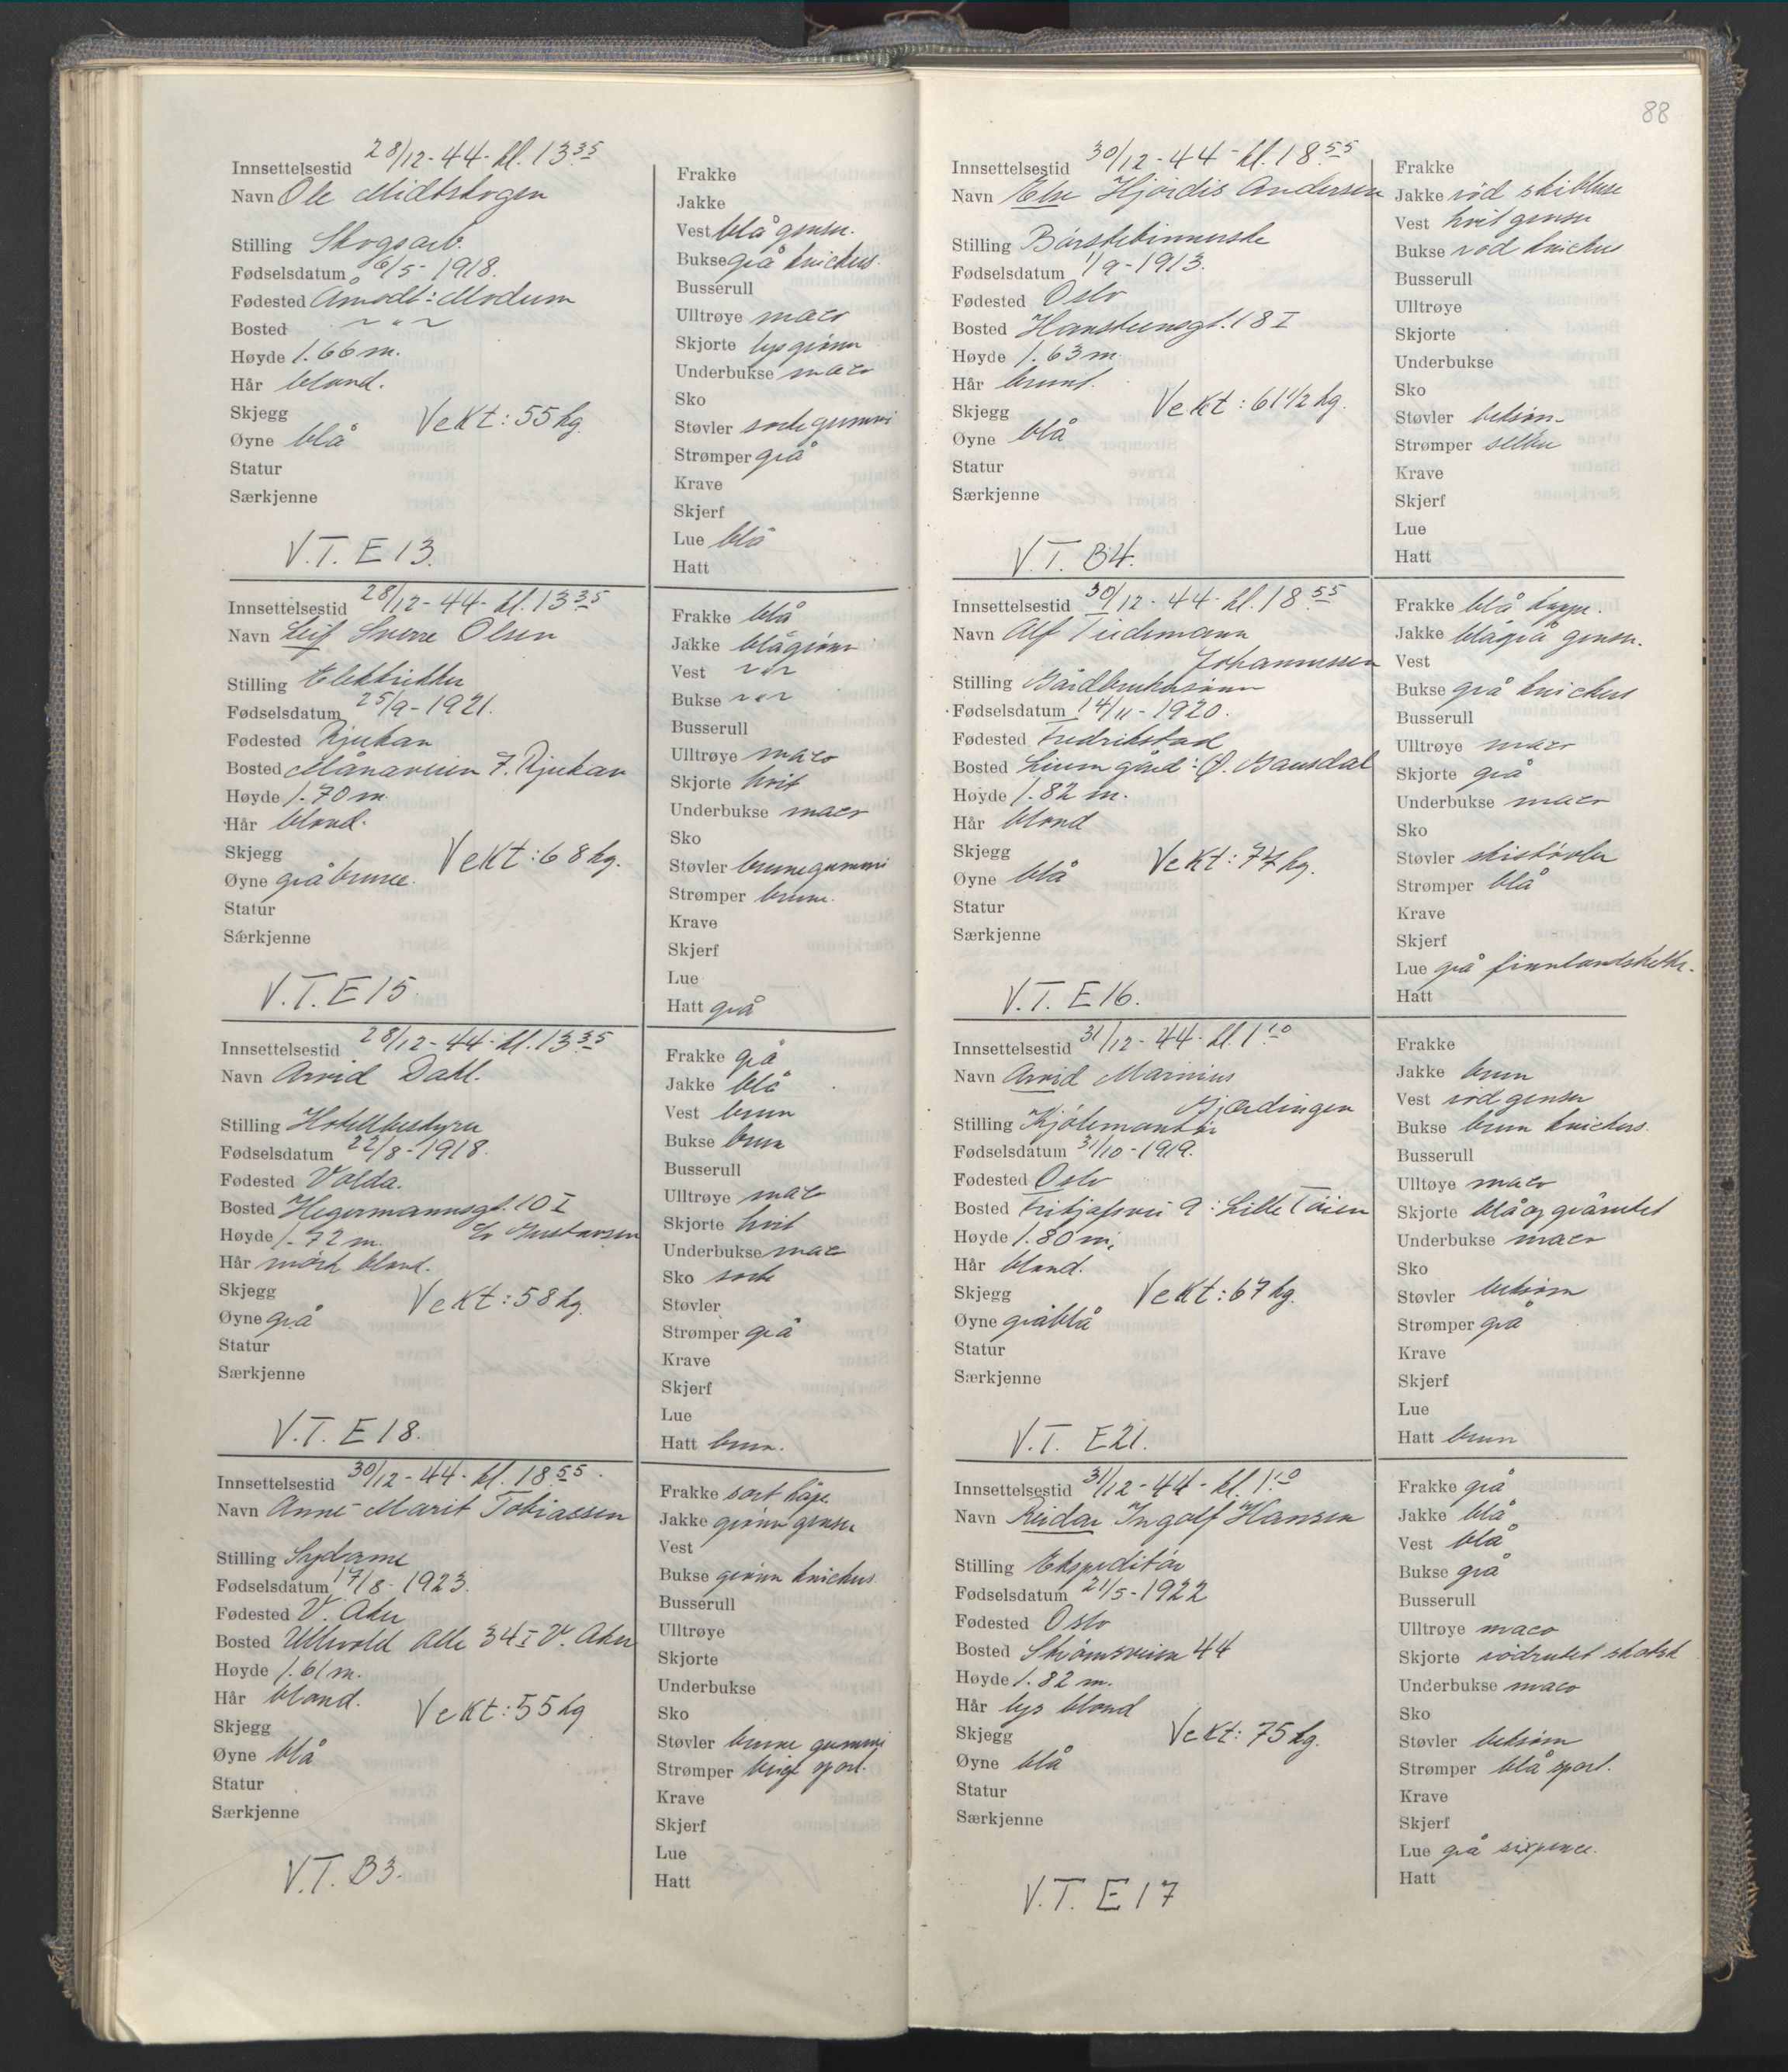 88
Innsettelsestid 28/12-44- kl. 13.35
Navn Ole Midtskogen
Stilling Skogsarb.
Fødselsdatum 6/5-1918.
Fødested Åmodt: Modum
Bosted ~ " ~
Høyde 1.66 m.
Hår blond.
Skjegg
Vekt: 55 kg.
Øyne blå
Statur
Særkjenne
V.T. E 13.
Frakke
Jakke
Vest blå genser.
Bukse grå knickers.
Busserull
Ulltrøye maco
Skjorte lys grønn
Underbukse maco
Sko
Støvler sorte gummi
Strømper grå
Krave
Skjerf
Lue blå
Hatt
Innsettelsestid 28/12-44- kl. 13.35
Navn Leif Sverre Olsen
Stilling Elektriker
Fødselsdatum 25/9-1921.
Fødested Rjukan
Bosted Månaveien 7. Rjukan
Høyde 1.70 m.
Hår blond.
Skjegg
Vekt: 68 kg.
Øyne gråbrune.
Statur
Særkjenne
V.T. E 15.
Frakke blå
Jakke blågrønn
Vest ~ " ~
Bukse ~ " ~
Busserull
Ulltrøye maco
Skjorte hvit
Underbukse maco
Sko
Støvler brune gummi
Strømper brune.
Krave
Skjerf
Lue
Hatt grå
Innsettelsestid 28/12-44- kl. 13.35
Navn Arvid Dahl.
Stilling Hotellbestyrer
Fødselsdatum 22/8-1918.
Fødested Volda.
Bosted Hegermannsgt. 10 I
Høyde 1.72 m. Gustavsen
Hår mørk blond.
Skjegg
Vekt: 58 kg.
Øyne grå
Statur
Særkjenne
V.T. E 18.
Frakke grå
Jakke blå
Vest brun
Bukse brun
Busserull
Ulltrøye maco
Skjorte hvit
Underbukse maco
Sko sorte
Støvler
Strømper grå
Krave
Skjerf
Lue
Hatt brun.
Innsettelsestid 30/12-44- kl. 18.55
Navn Anne-Marit Tobiassen
Stilling Sydame
Fødselsdatum 17/8-1923.
Fødested V. Aker
Bosted Ullevold Alle 34 I V. Aker
Høyde 1.61 m.
Hår blond.
Vekt: 55 kg
Skjegg
Øyne blå
Statur
Særkjenne
V.T. B3.
Frakke sort kåpe
Jakke grønn genser
Vest
Bukse grønn knickers.
Busserull
Ulltrøye
Skjorte
Underbukse
Sko
Støvler brune gummi
Strømper beige sport.
Krave
Skjerf
Lue
Hatt
Innsettelsestid 30/12-44- kl. 18.55
Navn Else Hjørdis Andersen
Stilling Børstebinnerske
Fødselsdatum 1/9-1913.
Fødested Oslo
Bosted Hansteensgt. 18 I
Høyde 1.63 m.
Hår brunt.
Skjegg
Vekt: 61 1/2 kg.
Øyne blå
Statur
Særkjenne
V.T. B4.
Frakke
Jakke rød skibluse
Vest hvit genser
Bukse rød knickers
Busserull
Ulltrøye
Skjorte
Underbukse
Sko
Støvler beksøm
Strømper selbu
Krave
Skjerf
Lue
Hatt
Innsettelsestid 30/12-44- kl. 18.55
Navn Alf Tidemann
Johannessen
Stilling Gårdbrukersønn
Fødselsdatum 14/11-1920.
Fødested Fredrikstad
Bosted Lium gård: Ø. Gausdal
Høyde 1.82 m.
Hår blond
Skjegg
Vekt: 74 kg.
Øyne blå
Statur
Særkjenne
V.T. E16.
Frakke blå kappe.
Jakke blågrå genser.
Vest
Bukse grå knickers
Busserull
Ulltrøye maco
Skjorte grå
Underbukse maco
Sko
Støvler skistøvler
Strømper blå
Krave
Skjerf
Lue grå finnlandshette.
Hatt
Innsettelsestid 31/12-44- kl. 1.10
Navn Arvid Marinius
Gjærdingen
Stilling Kjølemontør
Fødselsdatum 31/10-1919.
Fødested Oslo
Bosted Fritjofsvei 9: Lille Tøien
Høyde 1.80 m.
Hår blond.
Skjegg
Vekt: 67 kg.
Øyne gråblå
Statur
Særkjenne
V.T. E21.
Frakke
Jakke brun
Vest rød genser
Bukse brun knickers.
Busserull
Ulltøye maco
Skjorte blå og grårutet
Underbukse maco
Sko
Støvler beksøm
Strømper grå
Krave
Skjerf
Lue
Hatt brun
Innsettelsestid 31/12-44- kl. 1.10
Navn Reidar Ingolf Hansen
Stilling Ekspeditør
Fødselsdatum 21/5-1922
Fødested Oslo
Bosted Strømsveien 44
Høyde 1.82 m.
Hår lys blond
Skjegg
Vekt: 75 kg.
Øyne blå
Statur
Særkjenne
V.T. E17
Frakke grå
Jakke blå
Vest blå
Bukse grå
Busserull
Ulltrøye maco
Skjorte rødrutet skotsk
Underbukse maco
Sko
Støvler beksøm
Strømper blå sport.
Krave
Skjerf
Lue grå sixpence.
Hatt